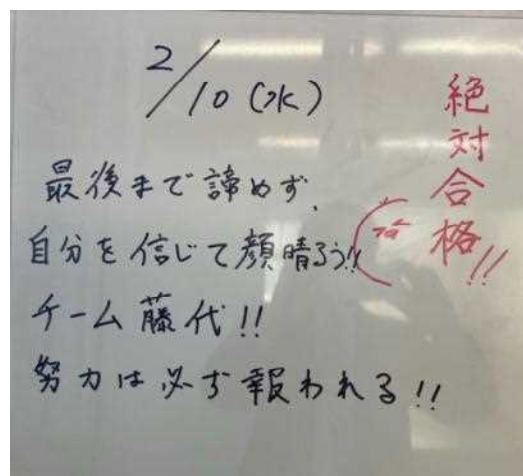 2/10(水)
絶対合格!!
最後まで諦めず、
自分を信じて顔晴ろう!!
チーム藤代!!
努力は必ず報われる!!